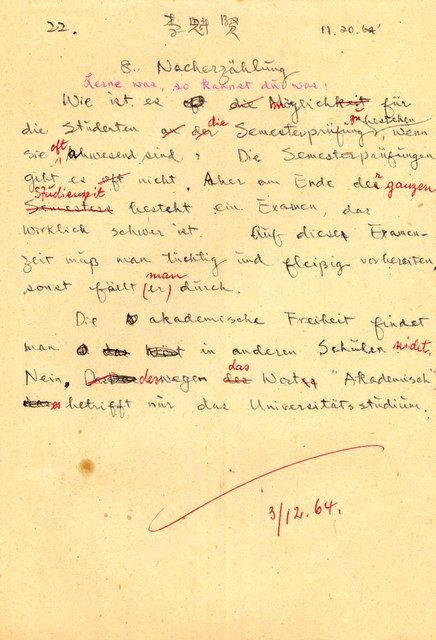 22. 李魁賢 11.20.64'
8. Nacherzählung
Lerne was, so kannst du was!
Wie ist es die möglichkeit für
die Studenten die Semesterprüfung zu bestehen, wenn
sie oft abwesend sind? Die Semesterprüfungen
gibt es oft nicht. Aber am Ende der ganzen
Studienzeit
Semesters besteht ein Examen, das
wirklich schwer ist. Auf diese Examen-
zeit muß man tüchtig und fleißig vorbereiten,
man
sonst fällt (er) durch.
Die akademische Freiheit findet
man in anderen Schulen nicht.
das
Nein. deswegen Wort "Akademisch"
betrifft nur das Universitätsstudium.
3/12.64.